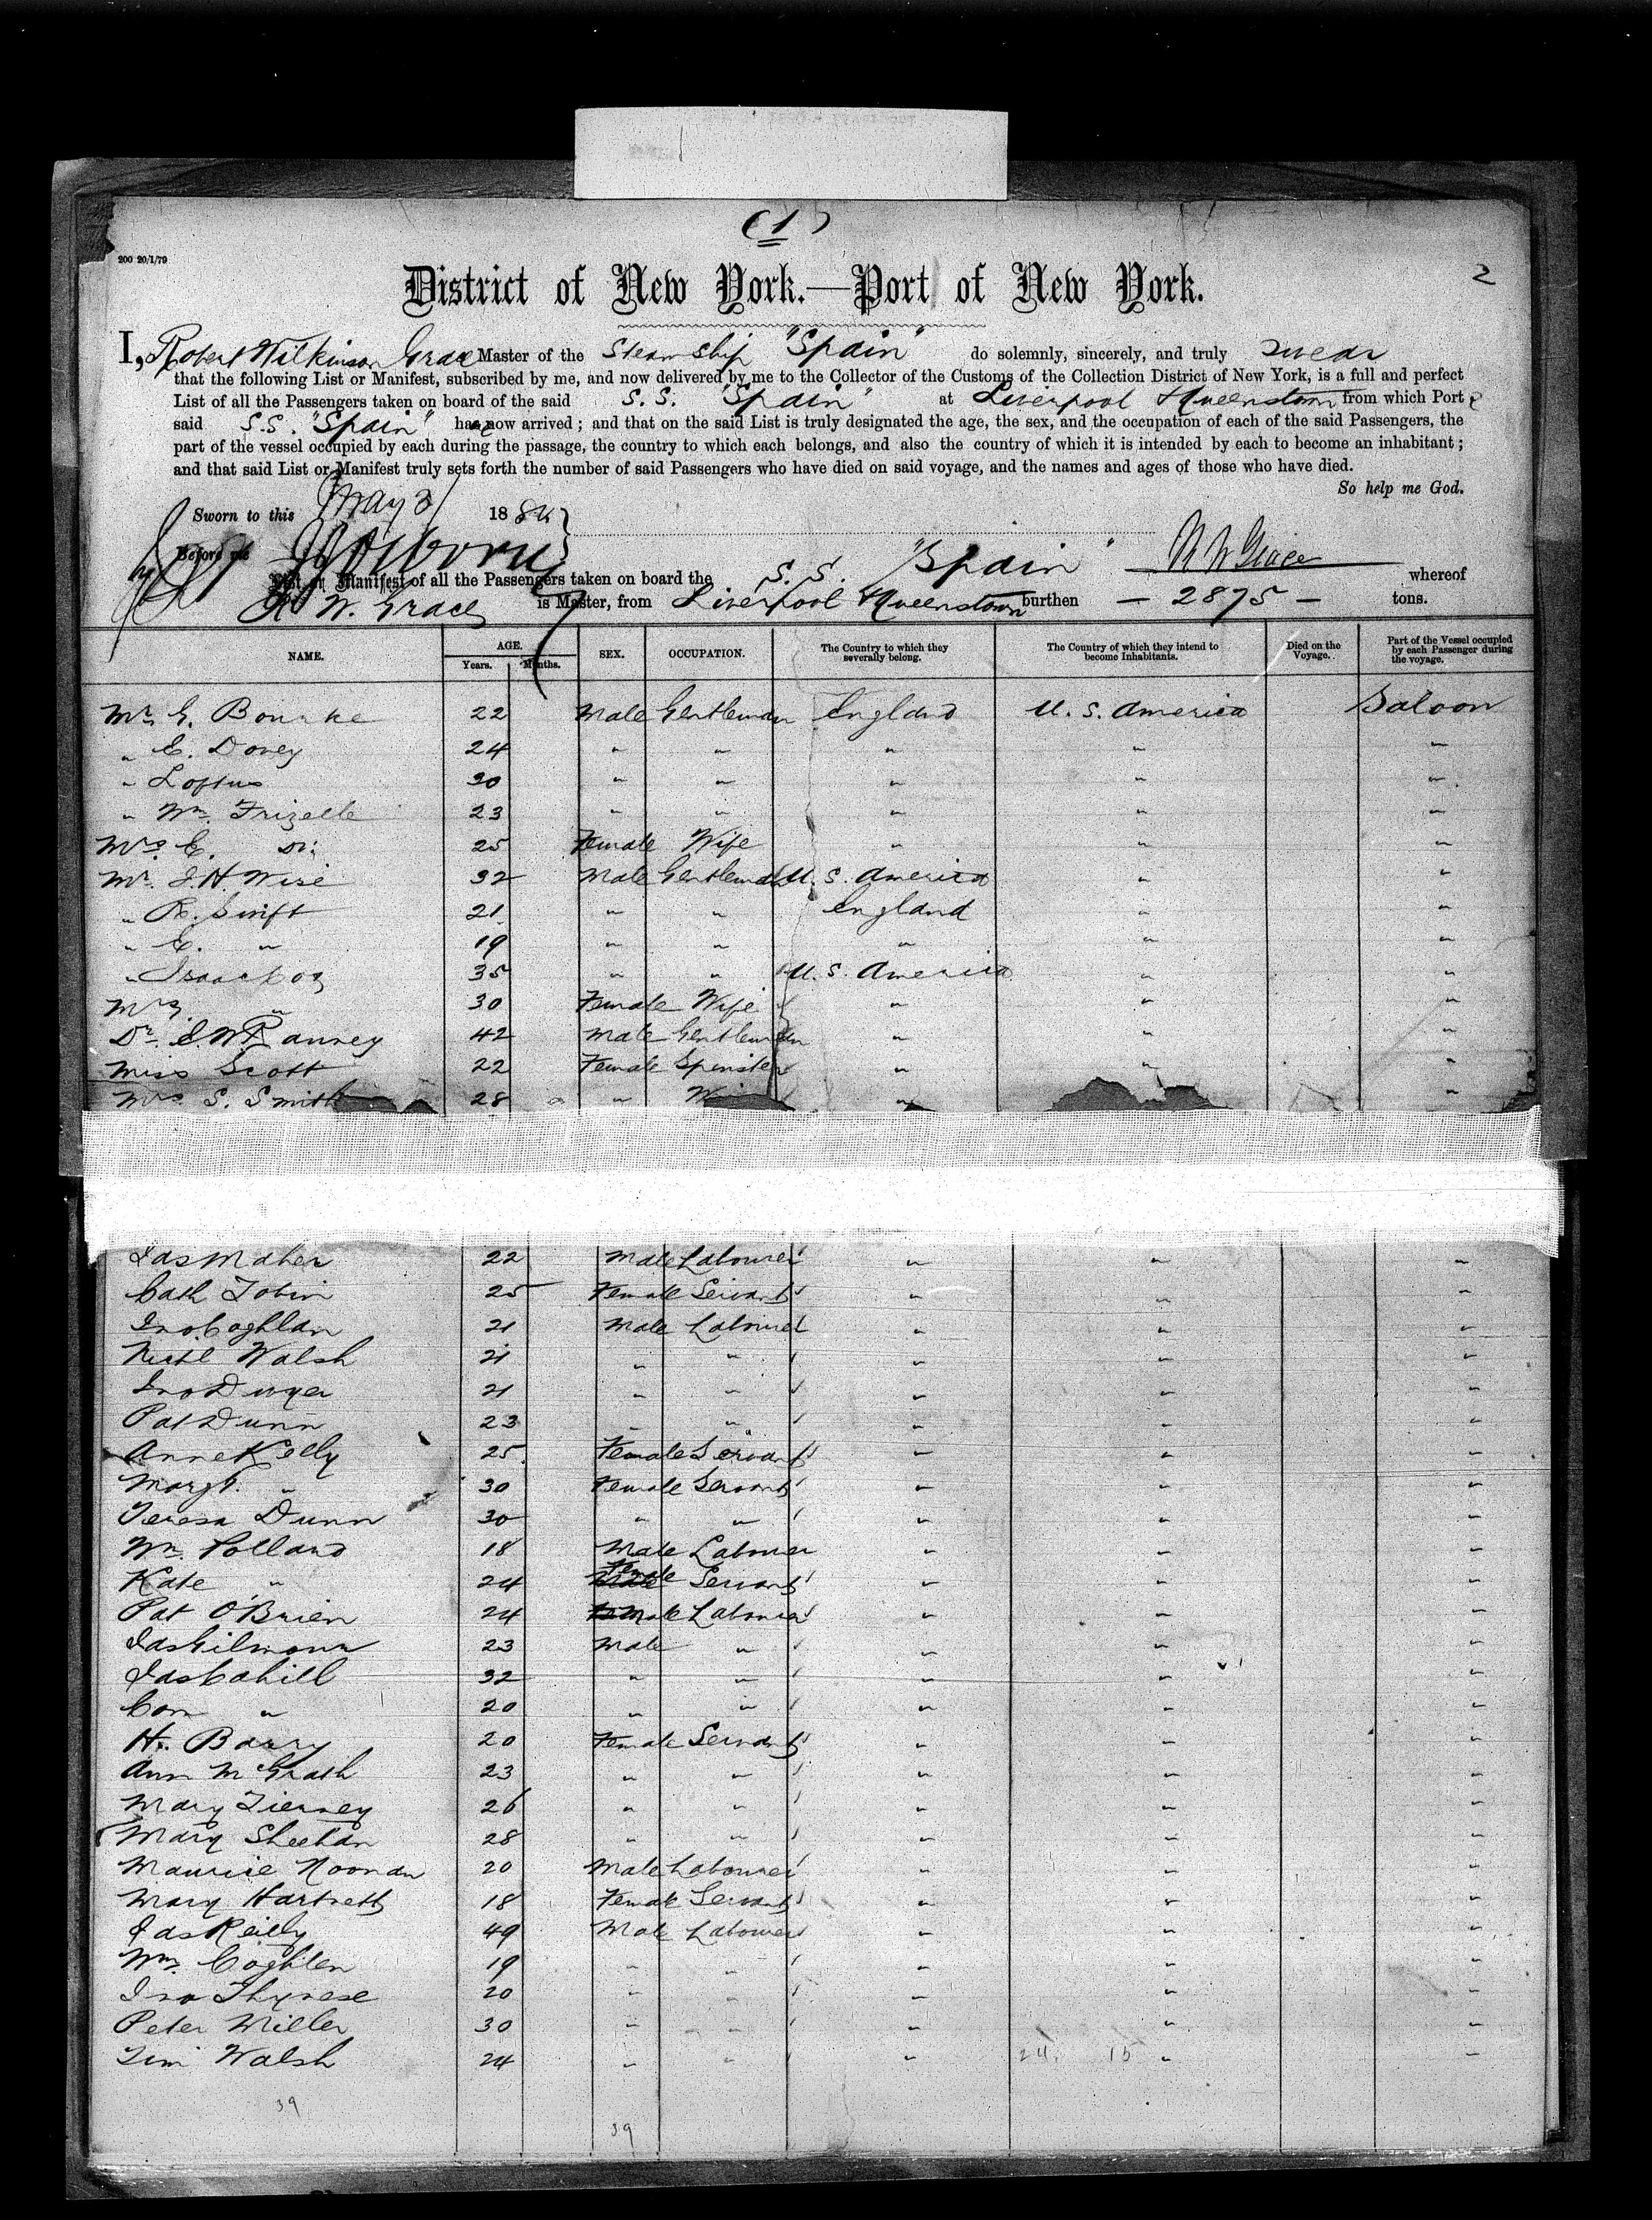 (1)
200 20/1/79
2
District of New York.—Port of New York.
I, Robert Wilkinson Grace Master of the Steam Ship "Spain" do solemnly, sincerely, and truly swear
that the following List or Manifest, subscribed by me, and now delivered by me to the Collector of the Customs of the Collection District of New York, is a full and perfect
List of all the Passengers taken on board of the said S.S. "Spain" at Liverpool & Queenstown from which Port
said S.S. "Spain" has now arrived; and that on the said List is truly designated the age, the sex, and the occupation of each of the said Passengers, the
part of the vessel occupied by each during the passage, the country to which each belongs, and also the country of which it is intended by each to become an inhabitant;
and that said List or Manifest truly sets forth the number of said Passengers who have died on said voyage, and the names and ages of those who have died.
So help me God.
Sworn to this May 31 1884
Before me R W Grace
List or Manifest of all the Passengers taken on board the S. S. "Spain" whereof
R. W. Grace is Master, from Liverpool & Queenstown burthen — 2875 — tons.
NAME. AGE. Years. Months. SEX. OCCUPATION. The Country to which they severally belong. The Country of which they intend to become Inhabitants. Died on the Voyage. Part of the Vessel occupied by each Passenger during the voyage.
Mr. G. Bourke 22 Male Gentleman England U. S. America Saloon
" E. Dovey 24 " " " " "
" Loftus 30 " " " " "
" Wm. Frizelle 23 " " " " "
Mrs E. Do. 25 Female Wife " " "
Mr. J. H. Wise 32 Male Gentleman U. S. America " "
" R. Swift 21 " " England " "
" E. " 19 " " " " "
" Isaac 35 " " U. S. America " "
Mrs. " 30 Female Wife " " "
Dr. Ranney 42 Male Gentleman " " "
Miss Scott 22 Female Spinster " " "
Mrs S. Smith 28 " " "
Jas Maher 22 Male Labourer " " "
Cath Tobin 25 Female Servant " " "
Jno. Coghlan 21 Male Labourer " " "
Michl Walsh 21 " " " " "
Jno Dwyer 21 " " " " "
Pat Dunn 23 " " " " "
Anne Kelly 25 Female Servant " " "
Margt. " 30 Female Servant " " "
Teresa Dunn 30 " " " " "
Wm. Polland 18 Male Labourer " " "
Kate " 24 Female Servant " " "
Pat O'Brien 24 Male Labourer " " "
Jas Gilmour 23 Male " " " "
Jas Cahill 32 " " " " "
Corn " 20 " " " " "
H. Barry 20 Female Servant " " "
Ann McGrath 23 " " " " "
Mary Tierney 26 " " " " "
Mary Sheehan 28 " " " " "
Maurice Noonan 20 Male Labourer " " "
Mary Hartnett 18 Female Servant " " "
Jas Reilly 49 Male Labourer " " "
Wm. Coghlen 19 " " " " "
Jno 20 " " " " "
Peter Miller 30 " " " " "
Tim Walsh 24 " " " 24. 15 " "
39
39